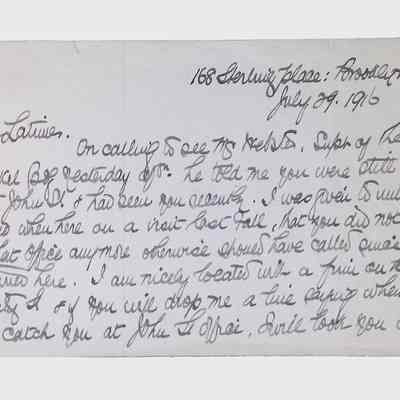 168 Sterling Place: Brooklyn
July 29. 1916
Latimer.
On calling to see Mr Webster, Supt of the
yesterday he told me you were still
John St & had seen you recently. I was given to
when here on a visit last Fall, that you did not
office anymore otherwise should have called
here. I am nicely located with a firm on
St & if you will drop me a line saying when
catch you at John St Office, I will look you